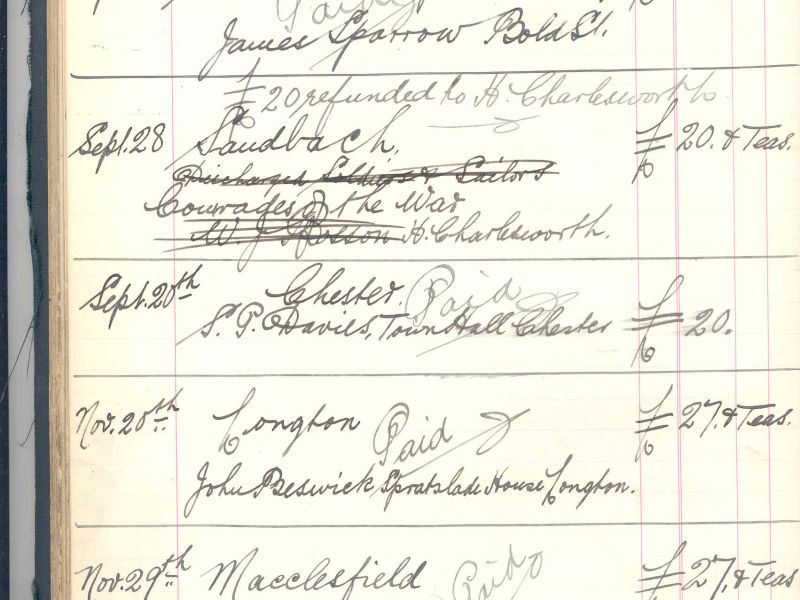 James Sparrow Bold St.
£20 refunded to H. Charlesworth
Sept. 28 Sandbach. £20. & Teas.
Discharged Soldiers & Sailors
Comrades of the War
H. Charlesworth.
Sept. 20th Chester. Paid
S. P. Davies, Town Hall Chester £20.
Nov. 20th Longton Paid £27. & Teas.
John Beswick, Spratslade House Longton.
Nov. 29th Macclesfield Paid £27, & Teas